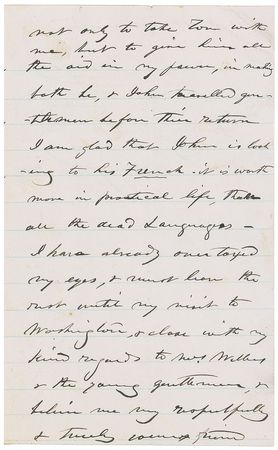 not only to take Tom with
me, but to give him all
the aid in my power, in making
both he, & John travelled gen-
tlemen before their return
I am glad that John is look
-ing to his French. it is worth
more in practical life, than
all the dead Languages -
I have already over taxed
my eyes, & must leave the
rest until my visit to
Washington, & close with my
kind regards to Mrs
& the young gentlemen, &
believe me my respectfully
& truely your friend